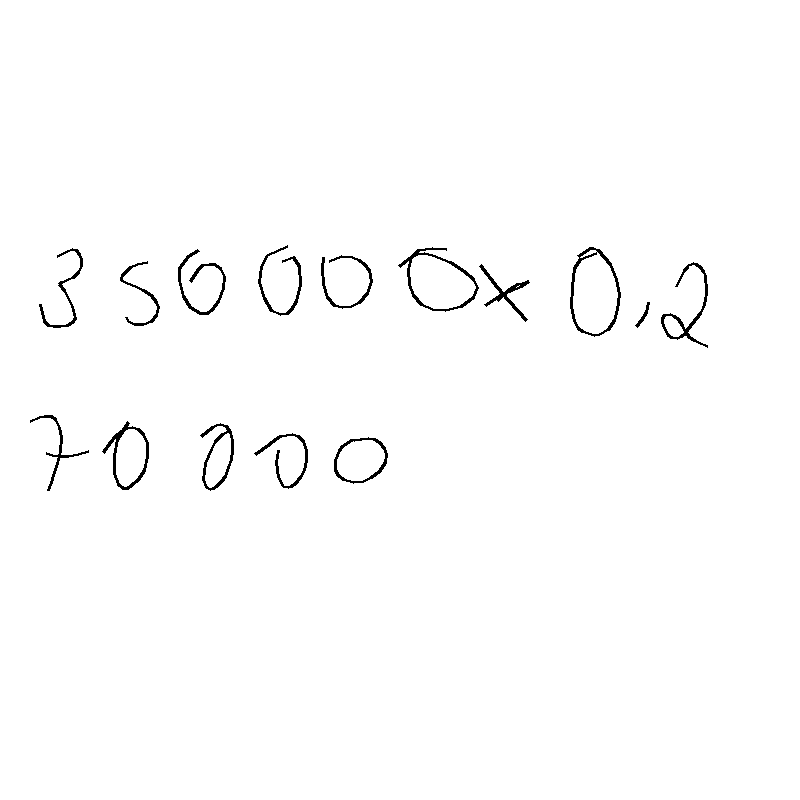 350000x 0,2
70000